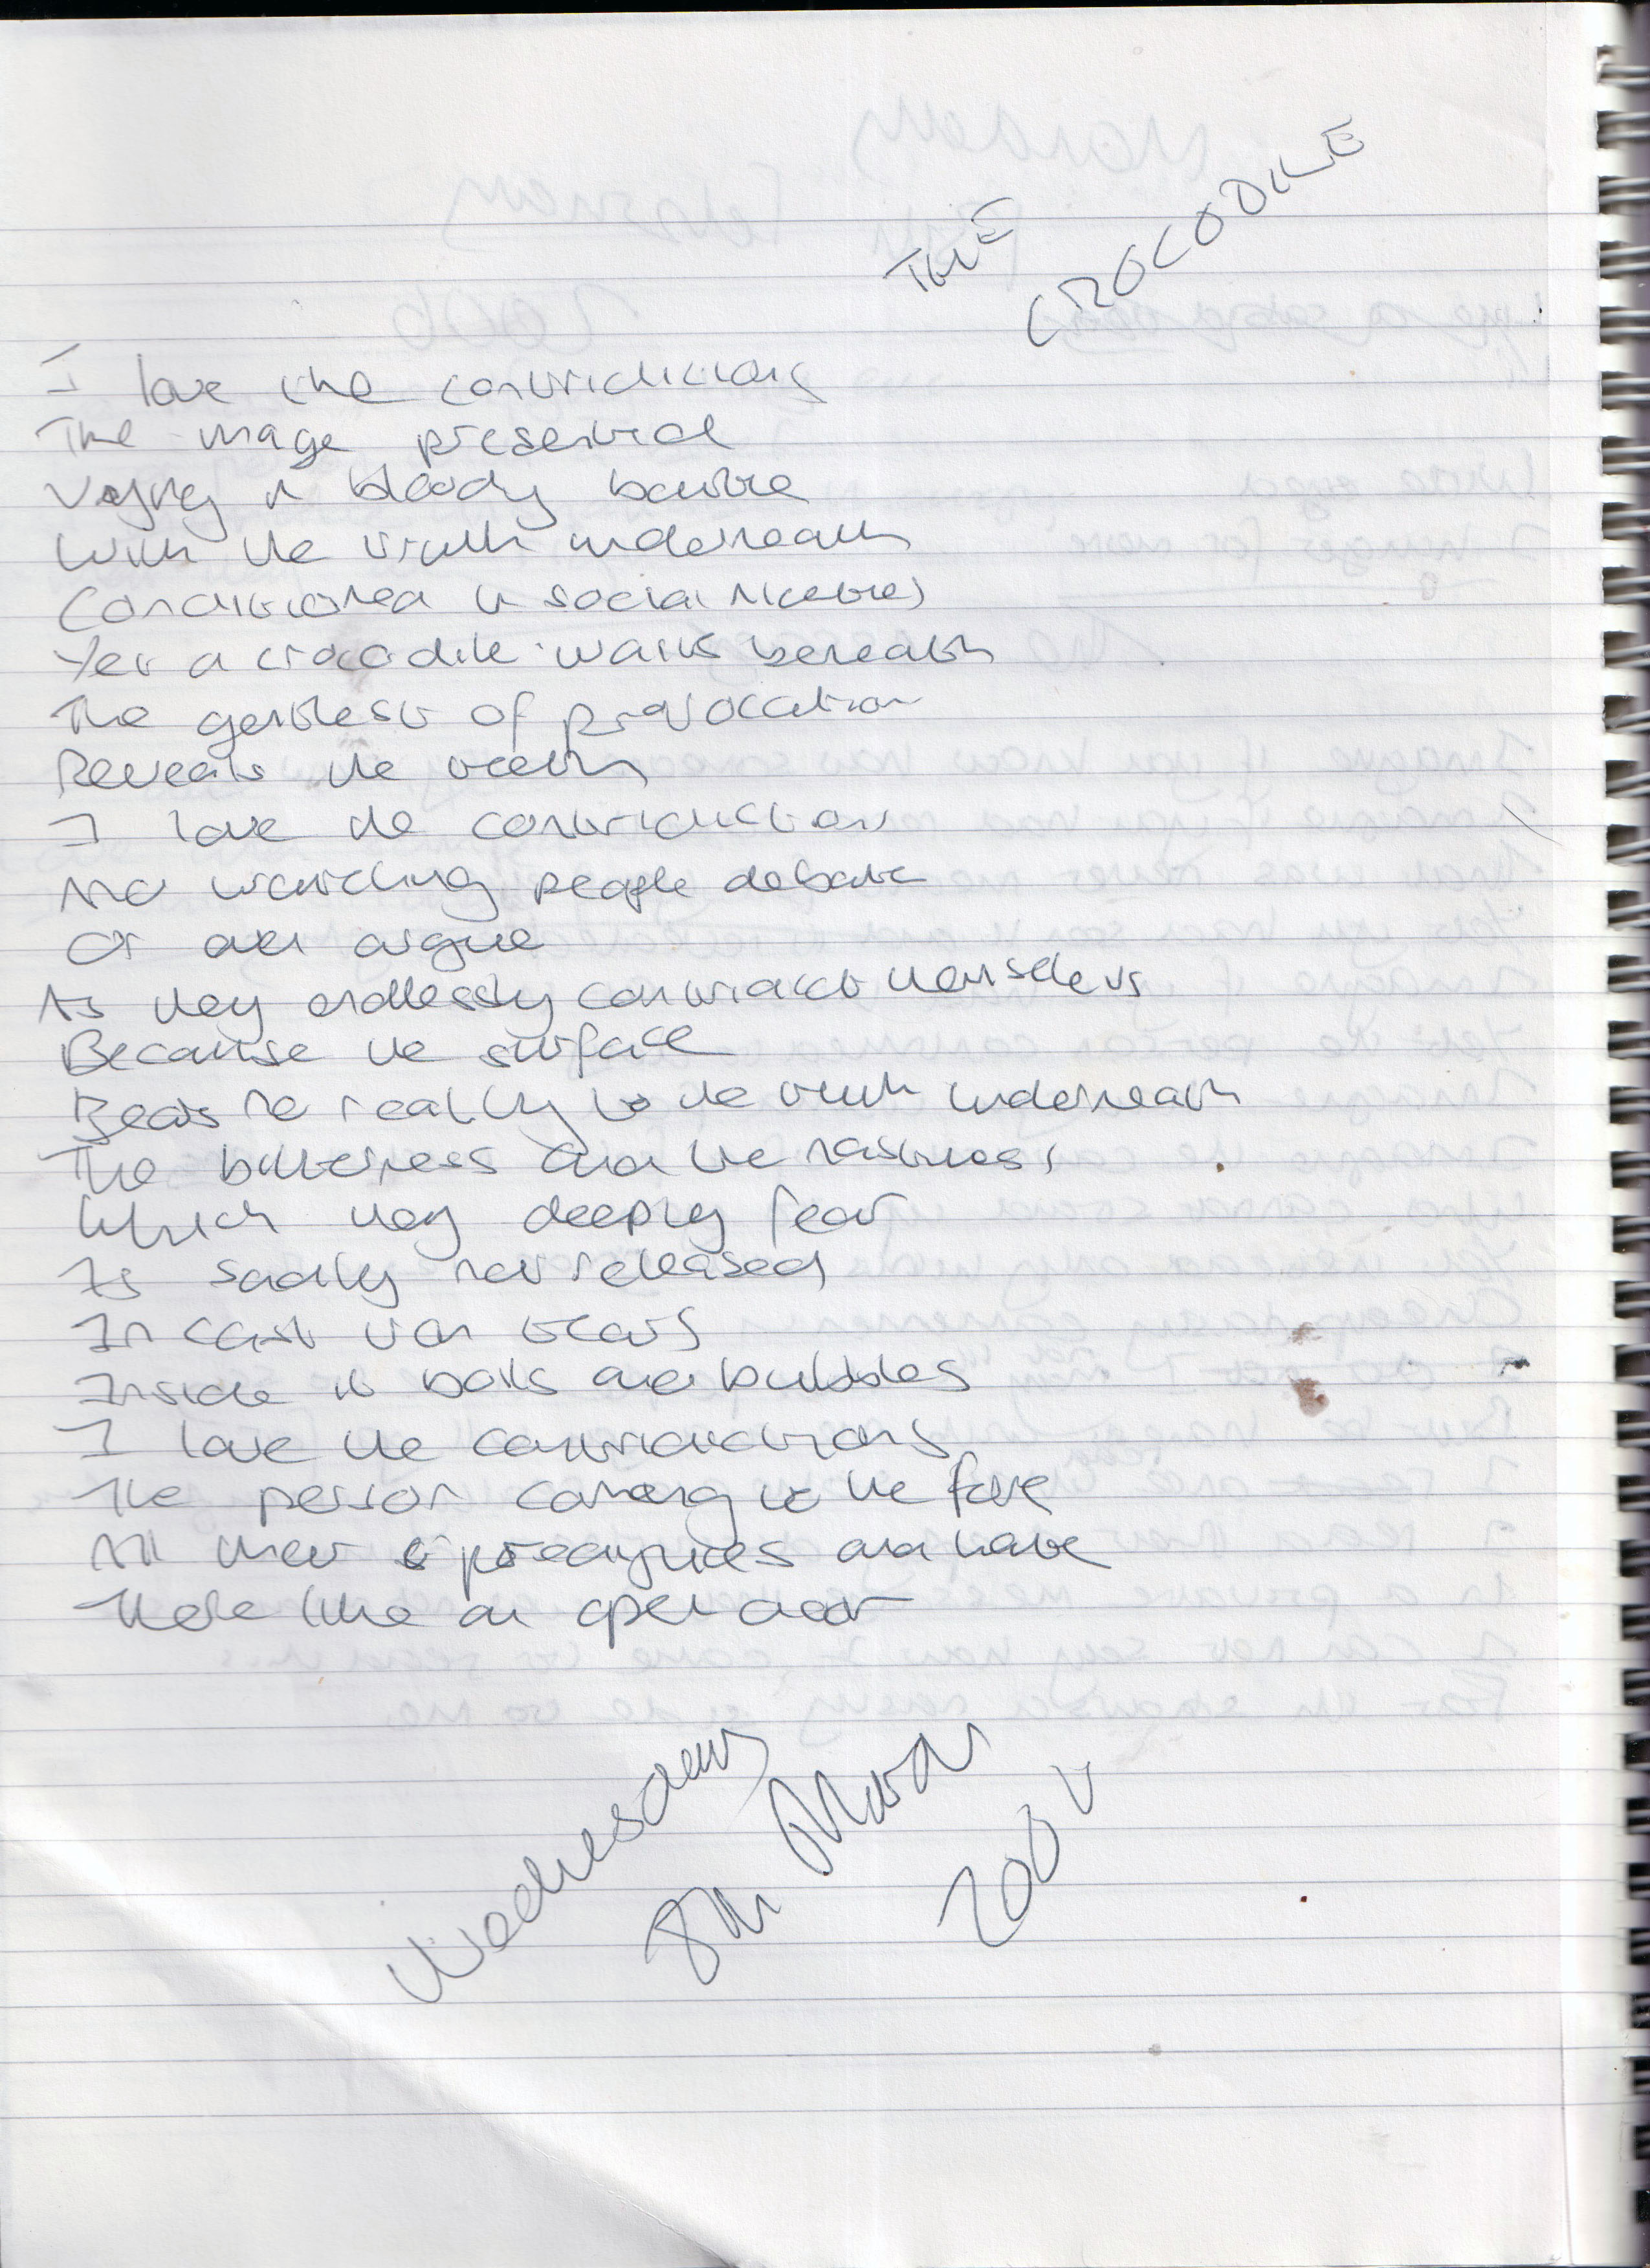 THE
CROCODILE
I love the contradictions
The image presented
Vying in bloody battle
With the truth underneath
Conditioned in social niceties
Yet a crocodile waits beneath
The gentlest of provocation
Reveals the teeth
I love the contradictions
And watching people debate
Or even argue
As they endlessly contradict themselves
Because the surface
Bears no reality to the truth underneath
The bitterness and the nastiness
Which they deeply fear
Is sadly not released
In cast iron tears
Inside it boils and bubbles
I love the contradictions
The person coming to the fore
All their prejudices and hate
There like an open door
Wednesday
8th
200